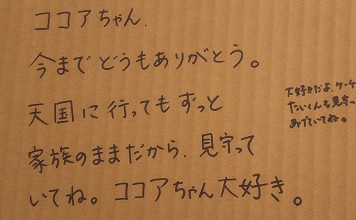 ココアちゃん.
今までどうもありがとう。
天国に行ってもずっと
家族のままだから、見守って
いてね。ココアちゃん大好き。
大好きだよ、ケーキ
たいくんも見守って
あげていてね。